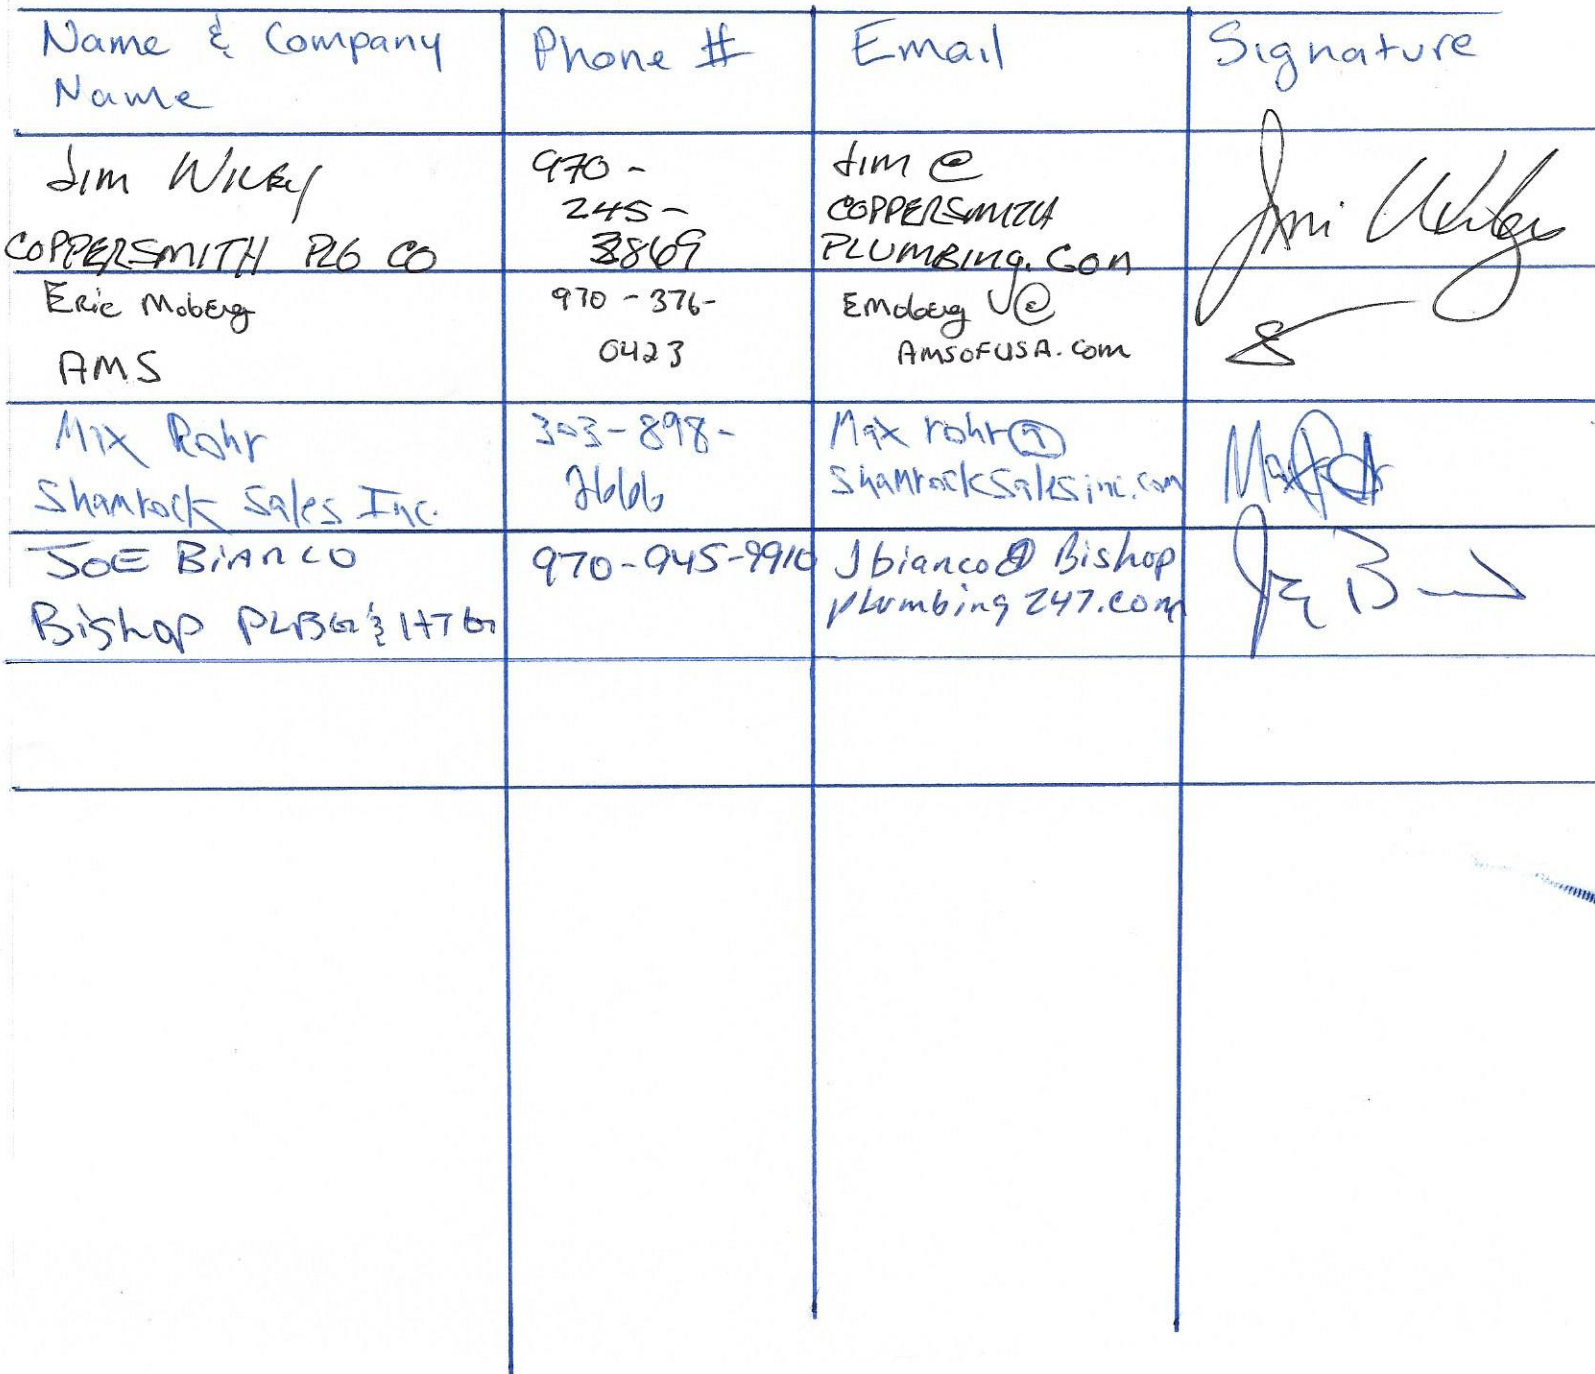 Name & Company Name
Phone #
Email
Signature
Jim Wiley
COPPERSMITH PLG CO
970-
245-
3869
Jim @
COPPERSMITH
PLUMBING.COM
Jim Wiley
Eric Moberg
AMS
970-376-
0423
EMoberg @
AMSOFUSA.com
Max Rohr
Shamrock Sales Inc.
303-898-
2666
Max rohr@
Shamrocksalesinc.com
JOE BIANCO
Bishop PLBG & HTG
970-945-9910
Jbianco@ Bishop
plumbing247.com